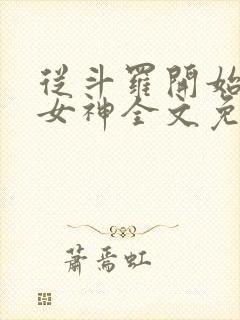 從斗羅開始
女神全文免
蕭焉虹